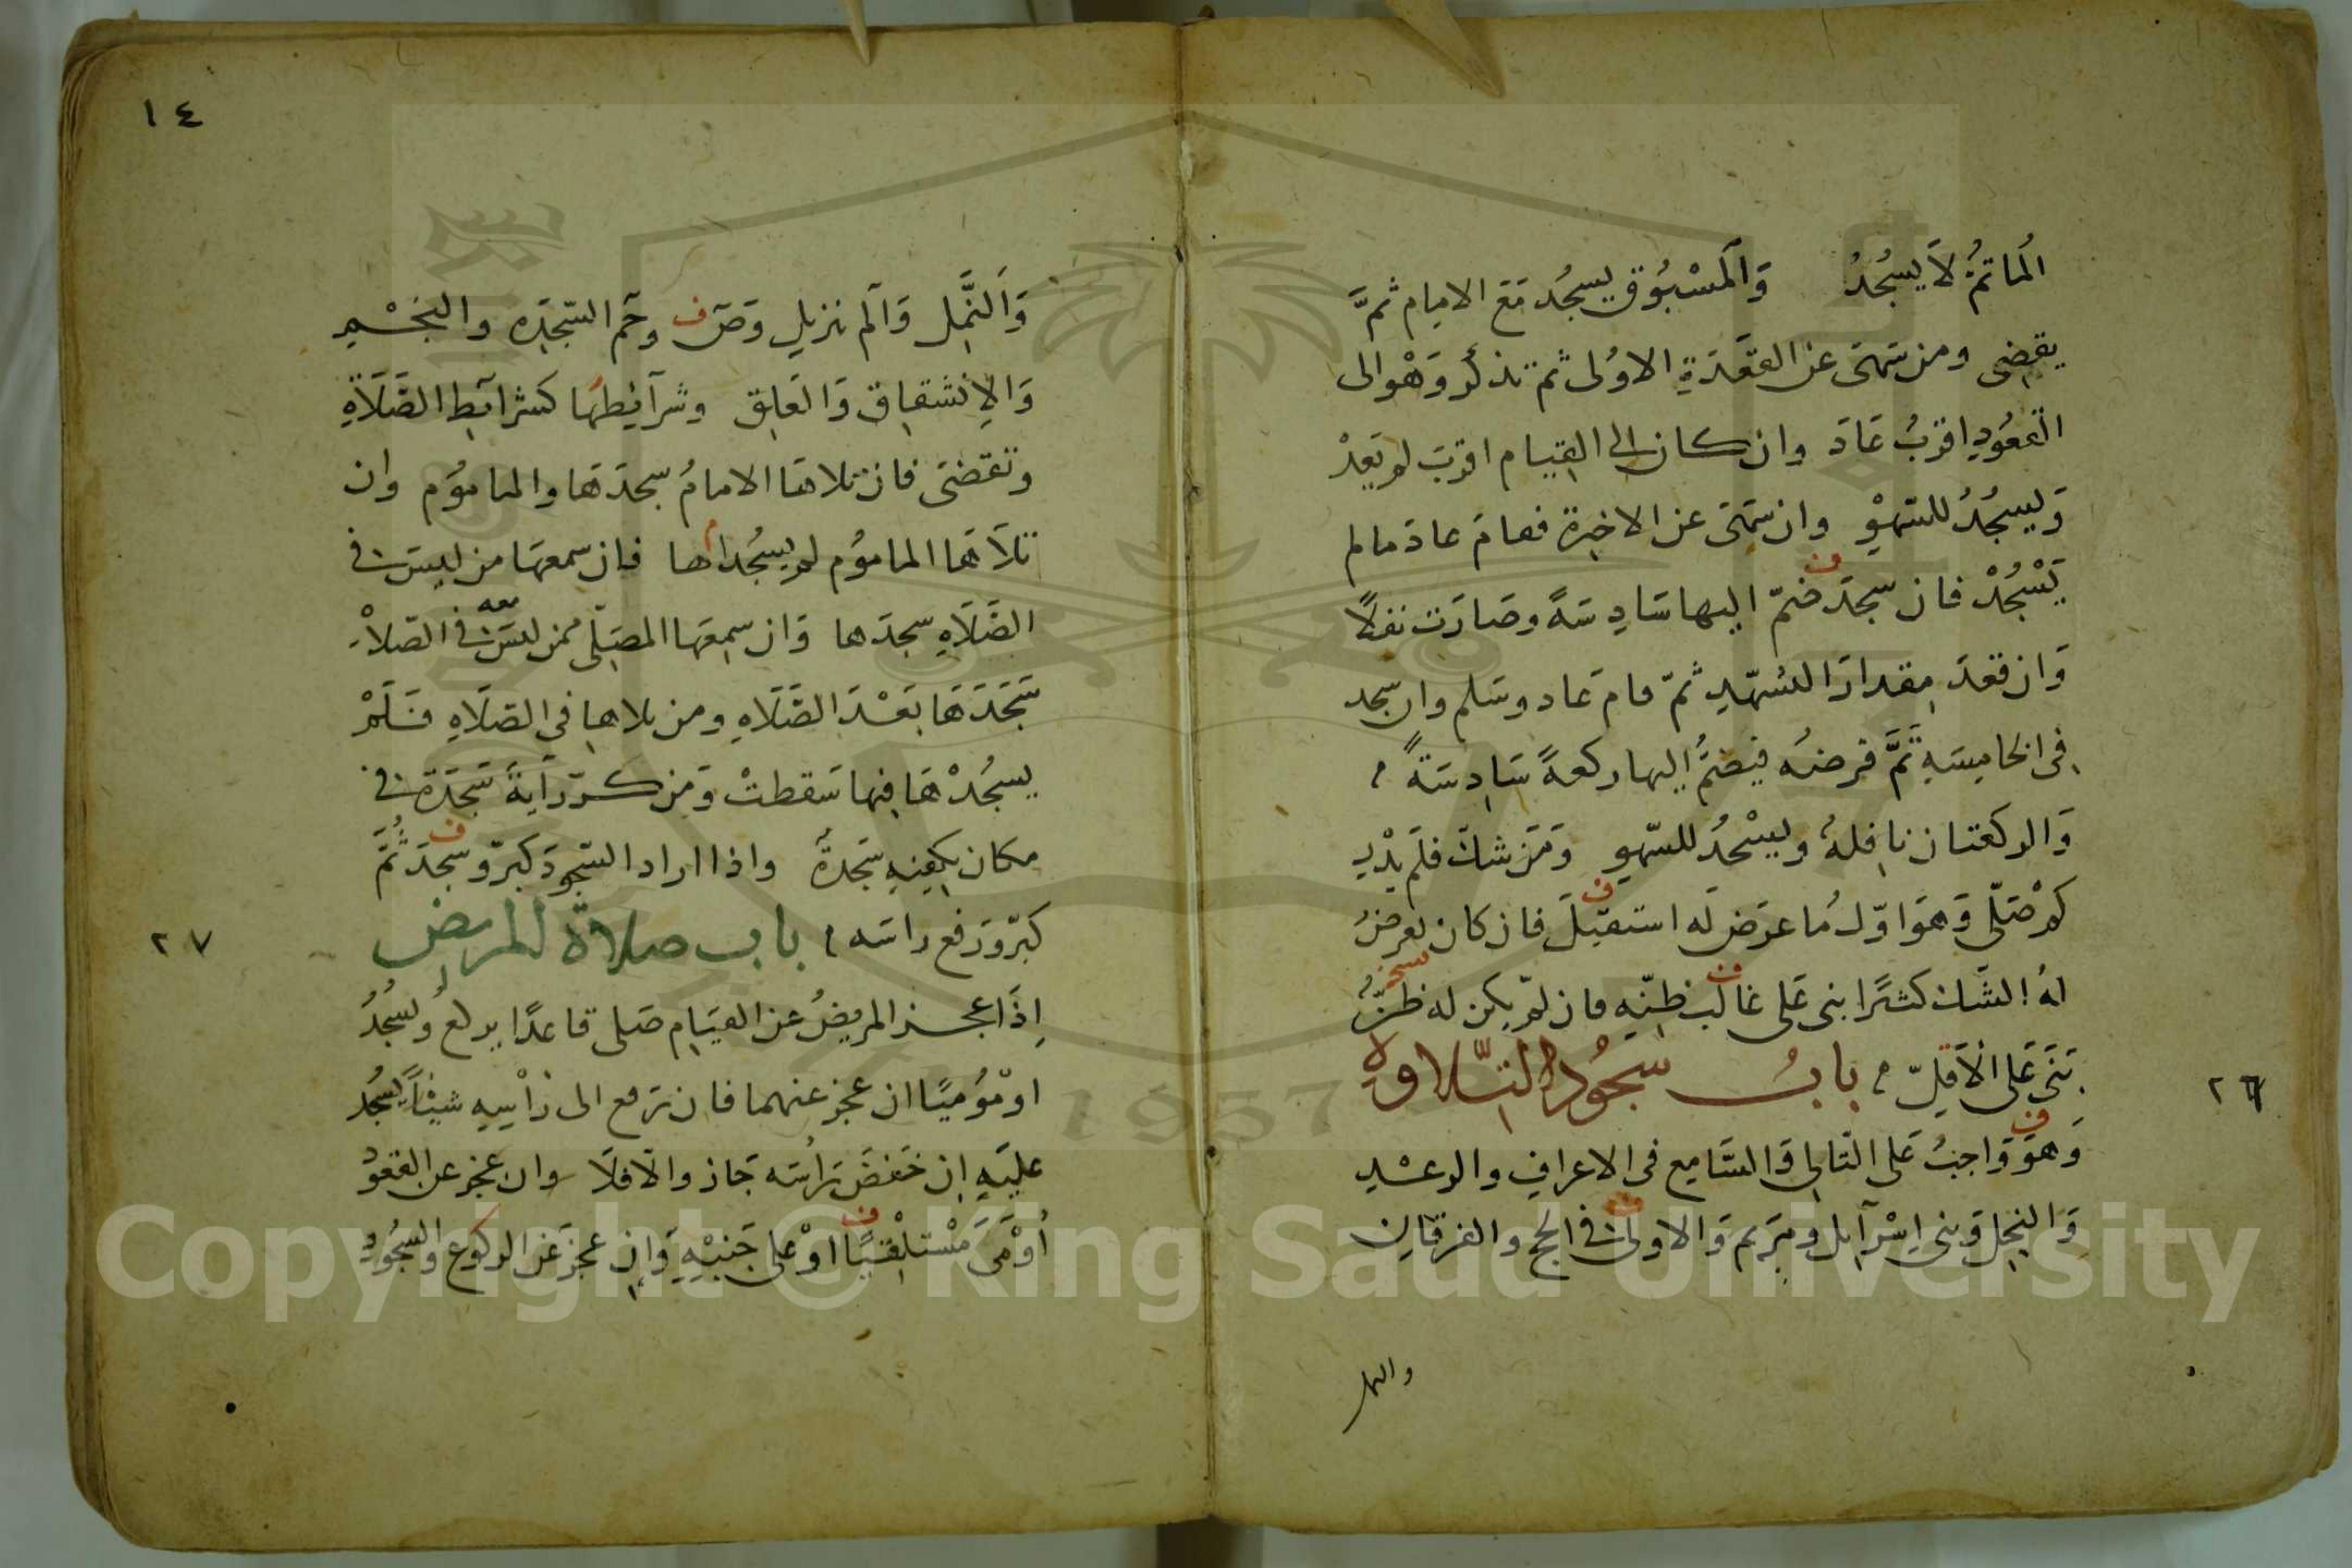 المَاتمُّ لَا يسجُدُ وَالمَسْبُوق يسجُد مَعَ الامام ثمَّ
يقضى ومن سَهَى عن القعْدَةِ الاوُلى ثم تذكّر وَهْو الى
القعُودِ اقربُ عَادَ وان كان الى القيام اقربَ لم يَعدْ
وَيسجُدُ للسّهوْ وان سَهَى عن الاخيرة فقامَ عادَ مالم
يَسْجُدْ فان سجدَ ضمّ اليها سَادِسَةً وصَارَت نفلًا
وَان قعدَ مقدارَ التشهّد ثمّ قامَ عَاد وسَلم وان سجد
فى الخامِسَةِ تَمَّ فرضُه فيضمُّ اليها ركعةً سَادِسَةً
وَالركعتان نافِلةٌ ويسْجُدُ للسّهو وَمَن شكّ فلَم يدْرِ
كمْ صَلّى وَهوَ اوّلُ مُا عرَضَ لَه استقبَلَ فان كان يعرضُ
لهُ الشَّك كثيرًا بنى عَلى غالب ظنّه فان لم يكن له ظنٌّ
بَنَى عَلى الاَقلِّ بابُ سجُود التّلاوةِ
٢٦
وَهوَ وَاجبٌ عَلى التّالى وَالسَّامِع فى الاعراف والرعْدِ
وَالنحل وَبنى اِسْرآيل ومَريم وَالاولى فى الحج والفرقان
والنمل
١٤
وَالنَّمل وَآلم تنزيل وَصٓ وحٓم السّجدَه والنجْم
وَالِانْشقاق وَالعَلق وشرآئِطهَا كشرآئط الصَّلَاةِ
وتقضىَ فان تلاهَا الامامُ سجدَهَا والماموُم وان
تلَاهَا الماموُم لم يسجُداها فان سمعهَا من ليسَ فى
الصَّلَاهِ سجدَها وَان سمِعَها المصَلّى ممن ليسَ معه فى الصّلاْة
سَجَدَهَا بَعْدَ الصَّلَاهِ ومن تلاها فى الصّلَاهِ فَلَمْ
يسجُدْهَا فيها سَقطتْ وَمن كرّر آيةَ سَجدَة فى
مكان يكفِيهِ سَجدةٌ واذا اراد السّجودَ كبّر وسجدَ ثُمَّ
كبّر وَرفع راسَه باب صلاة المريض
٢٧
اِذَا عجز المريضُ عن القيَام صَلى قاعدًا يركعُ ويسجُدُ
اومْوُميًا ان عجز عنهما فان رَفع الى رَأسِهِ شيئاً يسجُد
عليَهِ اِن خَفضَ رَأسَه جَاز والّا فلَا وان عجز عن القعوْد
أوْمَى مَسْتلْقيًا اوْ على جَنبْهِ وَان عجزَ عَن الركوع والسجُودِ
Copyright © King Saud University
1957